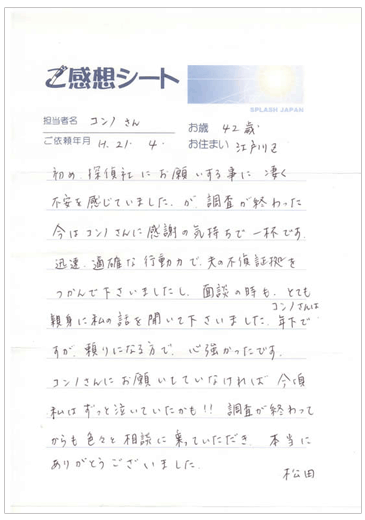 ご感想シート
SPLASH JAPAN
担当者名 コンノさん
お歳 42歳
ご依頼年月 H.21. 4.
お住まい 江戸川区
初め、探偵社にお願いする事に 凄く
不安を感じていました。が、調査が終わった
今はコンノさんに感謝の気持ちで一杯です。
迅速、適確な行動力で、夫の不偵証拠を
つかんで下さいましたし、面談の時も、とても
親身に私の話を聞いて下さいました。コンノさんは年下で
すが、頼りになる方で、心強かったです。
コンノさんにお願いしていなければ 今頃
私はずっと泣いていたかも!! 調査が終わって
からも色々と相談に乗っていただき、本当に
ありがとうございました。
松田